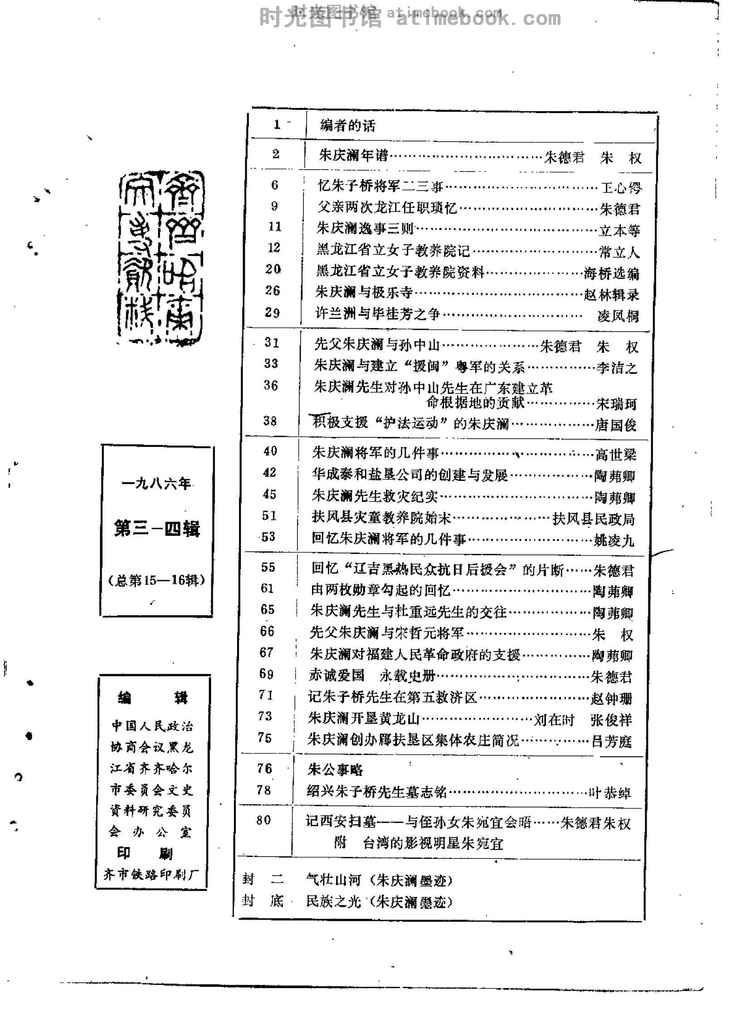 时光图书馆 atimebook.com
时光图书馆 atimebook.com
齐齐哈尔
文史资料
一九八六年
第三—四辑
（总第15—16辑）
编 辑
中国人民政治
协商会议黑龙
江省齐齐哈尔
市委员会文史
资料研究委员
会办公室
印 刷
齐市铁路印刷厂
1 编者的话
2 朱庆澜年谱……………………………朱德君 朱 权
6 忆朱子桥将军二三事……………………………王心得
9 父亲两次龙江任职琐忆…………………………朱德君
11 朱庆澜逸事三则…………………………………立本等
12 黑龙江省立女子教养院记………………………常立人
20 黑龙江省立女子教养院资料…………………海桥选编
26 朱庆澜与极乐寺………………………………赵林辑录
29 许兰洲与毕桂芳之争…………………………… 凌凤桐
31 先父朱庆澜与孙中山…………………朱德君 朱 权
33 朱庆澜与建立“援闽”粤军的关系……………李洁之
36 朱庆澜先生对孙中山先生在广东建立革
命根据地的贡献……………宋瑞珂
38 积极支援“护法运动”的朱庆澜………………唐国俊
40 朱庆澜将军的几件事……………………………高世梁
42 华成泰和盐垦公司的创建与发展………………陶茀卿
45 朱庆澜先生救灾纪实……………………………陶茀卿
51 扶风县灾童教养院始末…………………扶风县民政局
53 回忆朱庆澜将军的几件事………………………姚凌九
55 回忆“辽吉黑热民众抗日后援会”的片断……朱德君
61 由两枚勋章勾起的回忆…………………………陶茀卿
65 朱庆澜先生与杜重远先生的交往………………陶茀卿
66 先父朱庆澜与宋哲元将军………………………朱 权
67 朱庆澜对福建人民革命政府的支援……………陶茀卿
69 赤诚爱国 永载史册……………………………朱德君
71 记朱子桥先生在第五救济区……………………赵钟珊
73 朱庆澜开垦黄龙山……………………刘在时 张俊祥
75 朱庆澜创办郿扶垦区集体农庄简况……………吕芳庭
76 朱公事略
78 绍兴朱子桥先生墓志铭…………………………叶恭绰
80 记西安扫墓——与侄孙女朱宛宜会晤……朱德君朱权
附 台湾的影视明星朱宛宜
封 二 气壮山河（朱庆澜墨迹）
封 底 民族之光（朱庆澜墨迹）